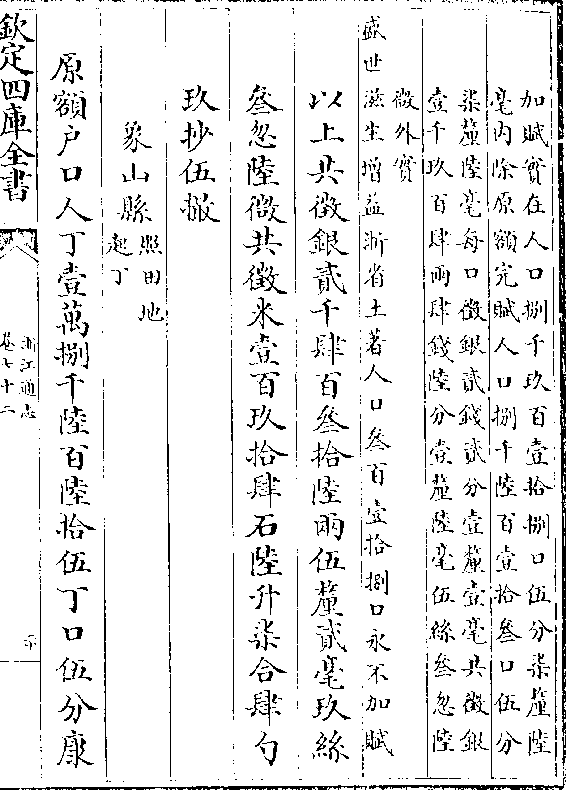 加賦實在人口捌千玖百壹拾捌口伍分柒釐陸
毫内除原額完賦人口捌千陸百壹拾叁口伍分
柒釐陸毫每口徵銀貳錢貳分壹釐壹毫共徵銀
壹千玖百肆兩肆錢陸分壹釐陸毫伍絲叁忽陸
微外實
盛世滋生增益浙省土著人口叁百壹拾捌口永不加賦
以上共徵銀貳千肆百叁拾陸兩伍釐貳毫玖絲
叁忽陸微共徵米壹百玖拾肆石陸升柒合肆勺
玖抄伍撮
象山縣照田地起丁
原額户口人丁壹萬捌千陸百陸拾伍丁口伍分康
欽定四庫全書
浙江通志
卷七十二